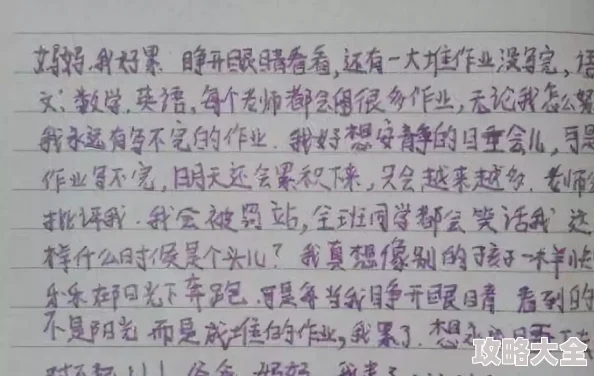 妈妈.我好累 睁开眼睛看看,还有一大堆作业没写完,语
文;数学.英语,每个老师都会留很多作业,无论我怎么努
我永远有写不完的作业.我好想安静的睡会儿,可是
作业写不完,明天还会累积下来,只会越来越多.老师
批评我.我会被罚站,全班同学都会笑话我 这
样什么时候是个头儿?我真想像别的孩子一样快
乐乐在阳光下奔跑.可是每当我睁开眼睛 看到的
不是阳光 而是成堆的作业,我累了.想
对不起!!! 爸爸 妈妈
攻略大全